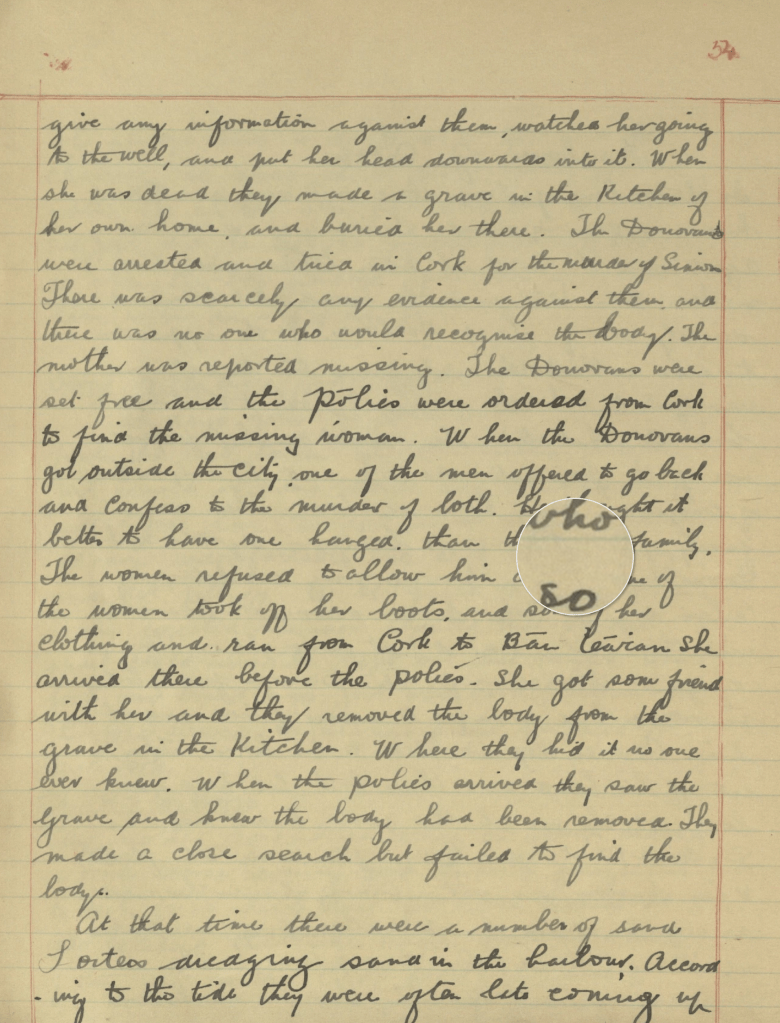 54
give any information against them, watched her going
to the well, and put her head downwards into it. When
she was dead they made a grave in the Kitchen of
her own home, and buried her there. The Donovans
were arrested and tried in Cork for the murder of Simon
There was scarcely any evidence against them and
there was no one who would recognise the body. The
mother was reported missing. The Donovans were
set free and the polies were ordered from Cork
to find the missing woman. When the Donovans
got outside the city, one of the men offered to go back
and confess to the murder of both. it
better to have one hanged. than family.
The women refused to allow him of
who
so
the women took off her boots, and her
clothing and ran from Cork to Bán
arrived there before the polies. She got som friend
with her and they removed the body from the
grave in the Kitchen. Where they hid it no one
ever knew. When the polies arrived they saw the
grave and knew the body had been removed. They
made a close search but failed to find the
body.
At that time there were a number of sand
dredging sand in the harbour. Accord
-ing to the tide they were often late coming up